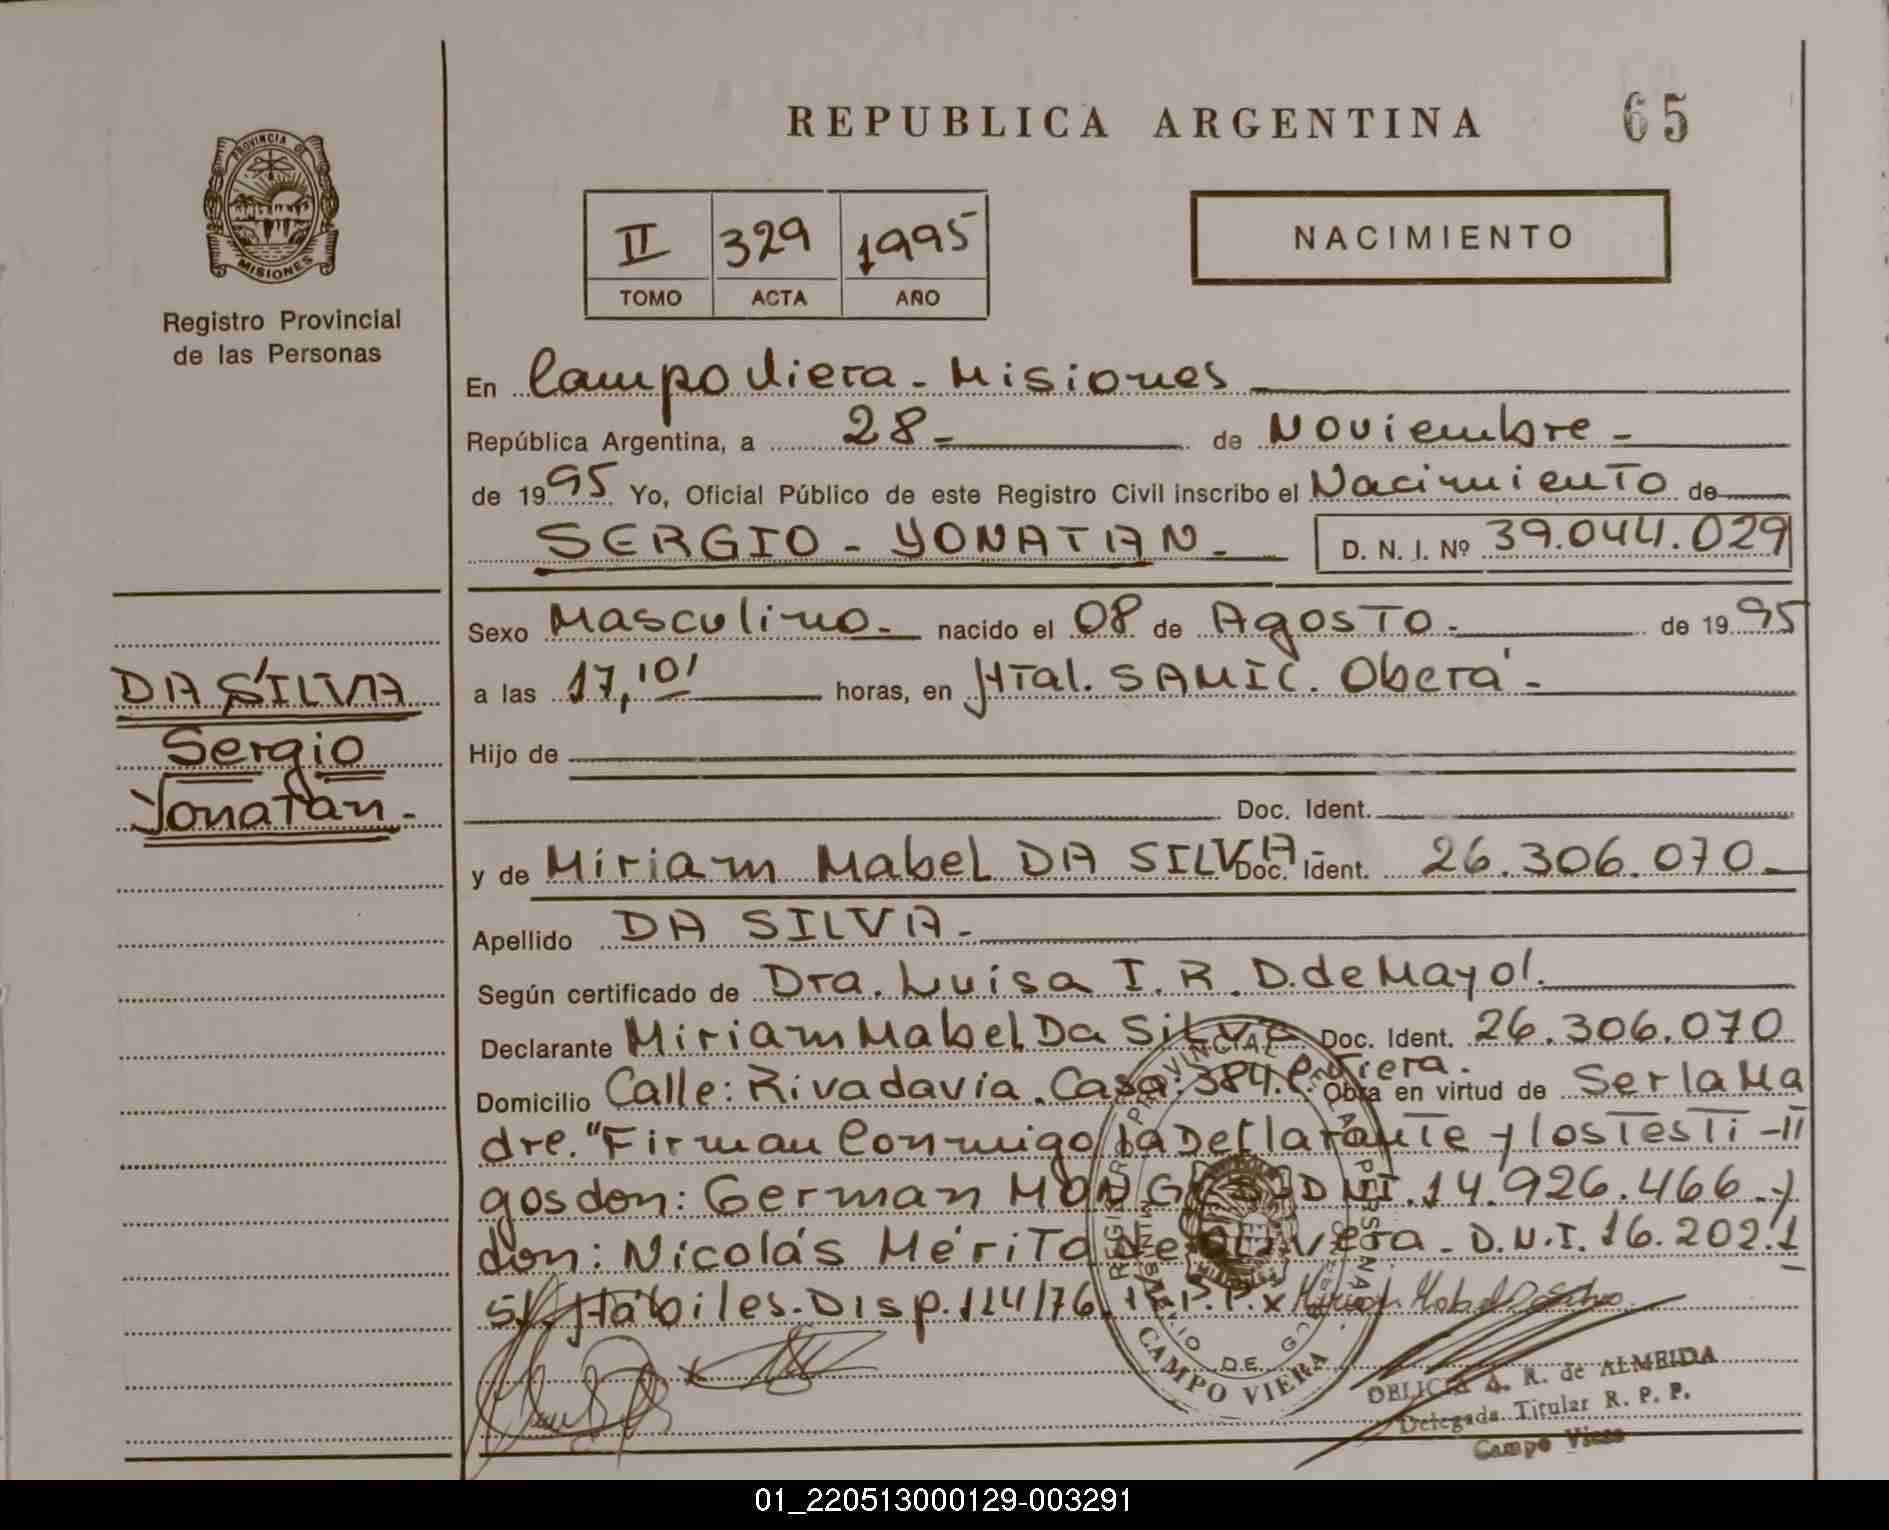 REPUBLICA ARGENTINA 65
PROVINCIA DE MISIONES
Registro Provincial
de las Personas
II 329 1995
TOMO ACTA AÑO
NACIMIENTO
En Campo Viera - Misiones
República Argentina, a 28 - de Noviembre -
de 1995 Yo, Oficial Público de este Registro Civil inscribo el Nacimiento de
SERGIO - YONATAN - D. N. I. Nº 39.044.029
Sexo Masculino - nacido el 08 de Agosto - de 1995
a las 17,10' horas, en Htal. SAMIC. Oberá -
DA SILVA
Sergio
Yonatan -
Hijo de
Doc. Ident.
y de Miriam Mabel DA SILVA - Doc. Ident. 26.306.070 -
Apellido DA SILVA -
Según certificado de Dra. Luisa I. R. D. de Mayol.
Declarante Miriam Mabel Da Silva Doc. Ident. 26.306.070
Domicilio Calle: Rivadavia. Casa: 384. C. Viera. Obra en virtud de Ser la Ma
dre. "Firman Conmigo la Declarante y los Testi -"
gos don: German MONGES DNI. 14.926.466 - y
don: Nicolás Mérito de Olivera - D.N.I. 16.202.1
51 Hábiles. Disp. 114/76. R.P.P. x Miriam Mabel Da Silva
REGISTRO PROVINCIAL DE LAS PERSONAS
MINISTERIO DE GOBIERNO
CAMPO VIERA
OBLICIA A. R. de ALMEIDA
Delegada Titular R. P. P.
Campo Viera
01_220513000129-003291